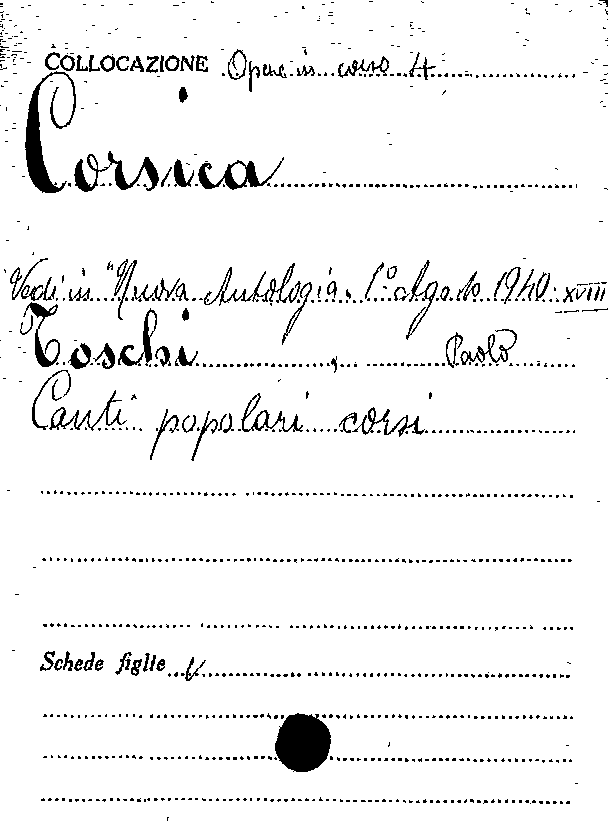 COLLOCAZIONE Opere in corso 4
Corsica
Vedi in "Nuova Antologia. 1° Agosto 1940. XVIII
Toschi, Paolo
Canti popolari corsi
Schede figlie